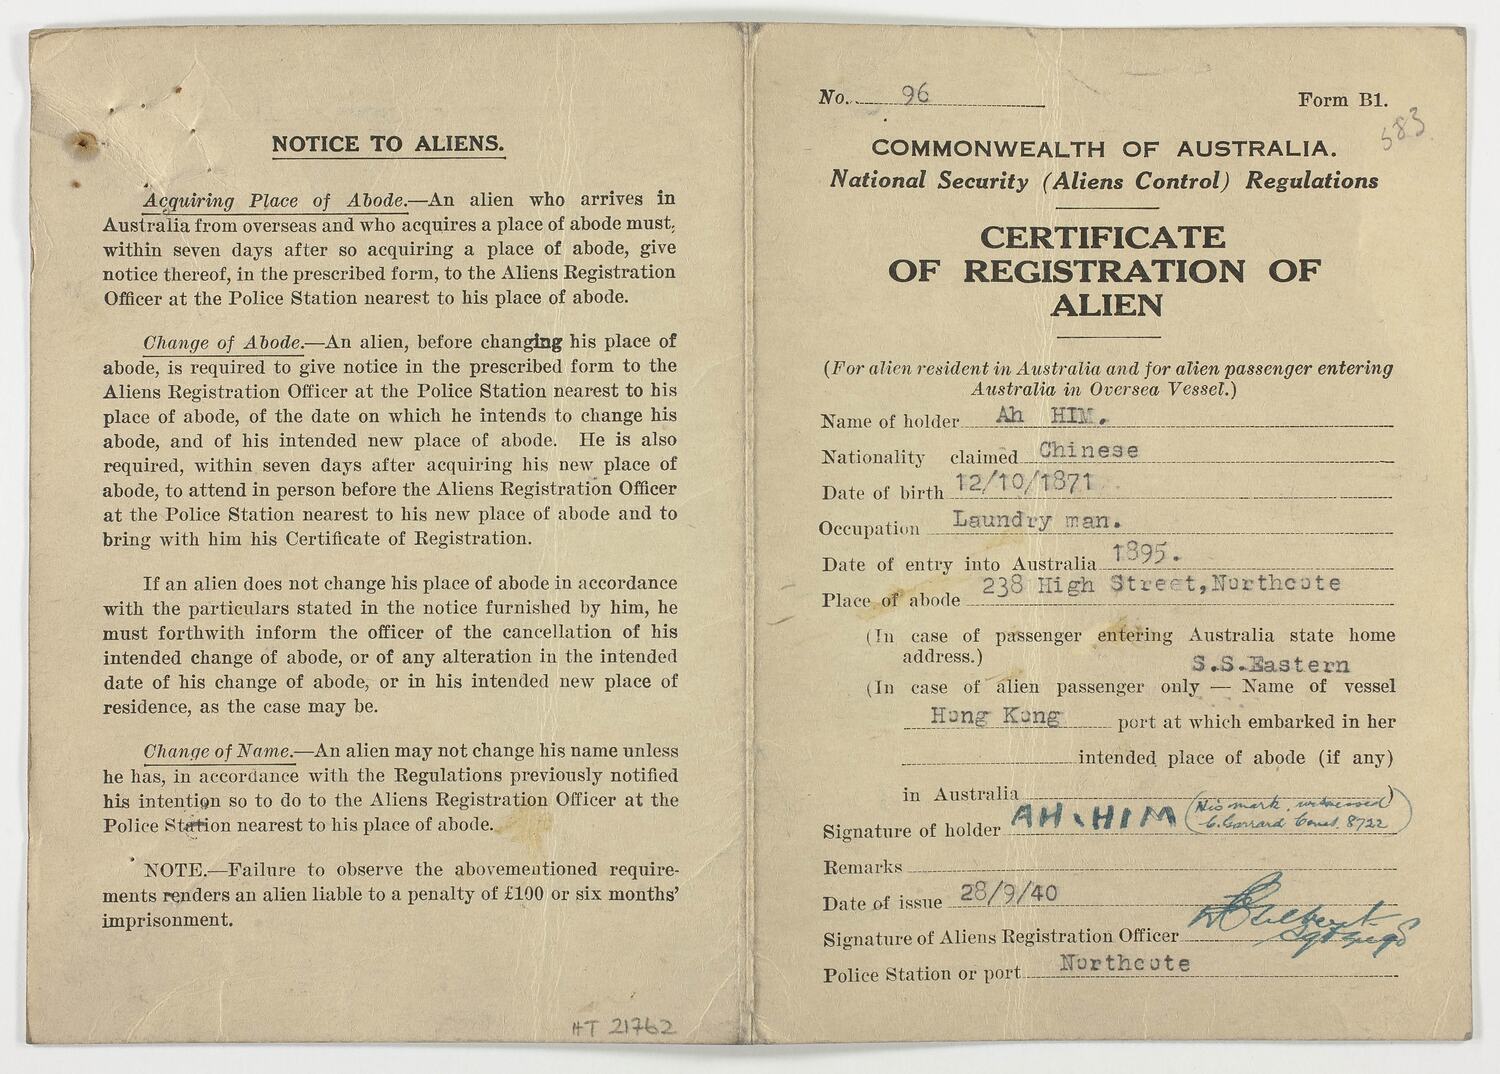 NOTICE TO ALIENS.
Acquiring Place of Abode.—An alien who arrives in
Australia from overseas and who acquires a place of abode must,
within seven days after so acquiring a place of abode, give
notice thereof, in the prescribed form, to the Aliens Registration
Officer at the Police Station nearest to his place of abode.
Change of Abode.—An alien, before changing his place of
abode, is required to give notice in the prescribed form to the
Aliens Registration Officer at the Police Station nearest to his
place of abode, of the date on which he intends to change his
abode, and of his intended new place of abode. He is also
required, within seven days after acquiring his new place of
abode, to attend in person before the Aliens Registration Officer
at the Police Station nearest to his new place of abode and to
bring with him his Certificate of Registration.
If an alien does not change his place of abode in accordance
with the particulars stated in the notice furnished by him, he
must forthwith inform the officer of the cancellation of his
intended change of abode, or of any alteration in the intended
date of his change of abode, or in his intended new place of
residence, as the case may be.
Change of Name.—An alien may not change his name unless
he has, in accordance with the Regulations previously notified
his intention so to do to the Aliens Registration Officer at the
Police Station nearest to his place of abode.
NOTE.—Failure to observe the abovementioned require-
ments renders an alien liable to a penalty of £100 or six months'
imprisonment.
HT 21762
No. 96 Form B1.
583
COMMONWEALTH OF AUSTRALIA.
National Security (Aliens Control) Regulations
CERTIFICATE
OF REGISTRATION OF
ALIEN
(For alien resident in Australia and for alien passenger entering
Australia in Oversea Vessel.)
Name of holder Ah HIM.
Nationality claimed Chinese
Date of birth 12/10/1871
Occupation Laundry man.
Date of entry into Australia 1895.
Place of abode 238 High Street,Northcote
(In case of passenger entering Australia state home
address.) S.S.Eastern
(In case of alien passenger only — Name of vessel
Hong Kong port at which embarked in her
intended place of abode (if any)
in Australia )
Signature of holder AH.HIM (His mark, witnessed
C. Gerrard Const. 8722)
Remarks
Date of issue 28/9/40
Signature of Aliens Registration Officer Gilbert
Police Station or port Northcote